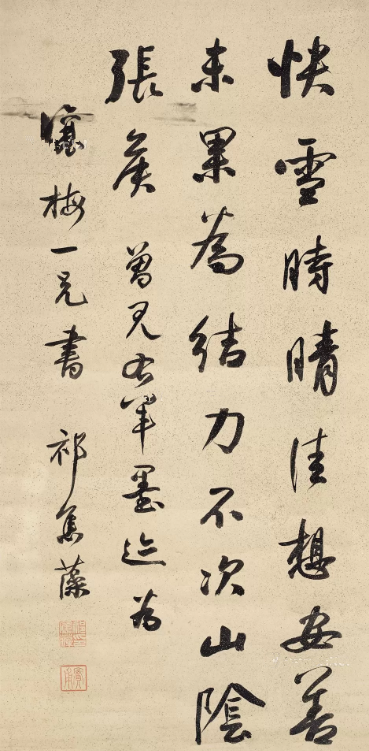 快雪時晴佳想安善
未果為結力不次山陰
張侯 曾見右軍墨迹為
梅一兄書 祁寯藻